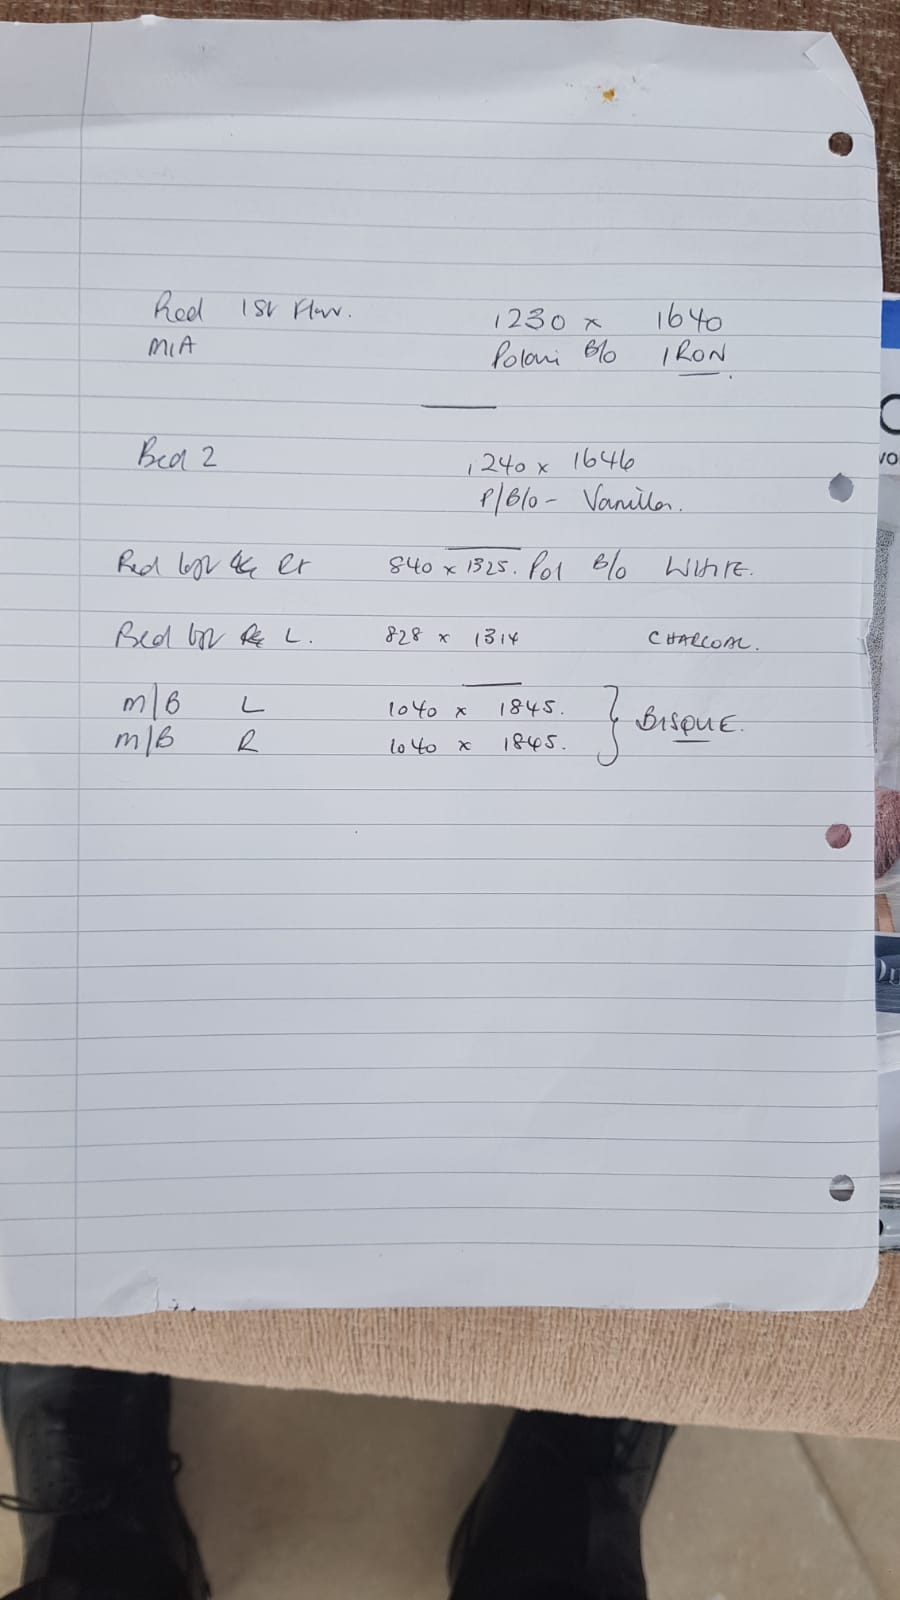 Bed 1st Floor. 1230 x 1640
MIA Polani B/o IRON.
Bed 2 1240 x 1646
P/B/o - Vanilla.
Bed 840 x 1325. Pol B/o WHITE.
Bed L. 828 x 1314 CHARCOAL.
M/B L 1040 x 1845.
M/B R 1040 x 1845. } BISQUE.